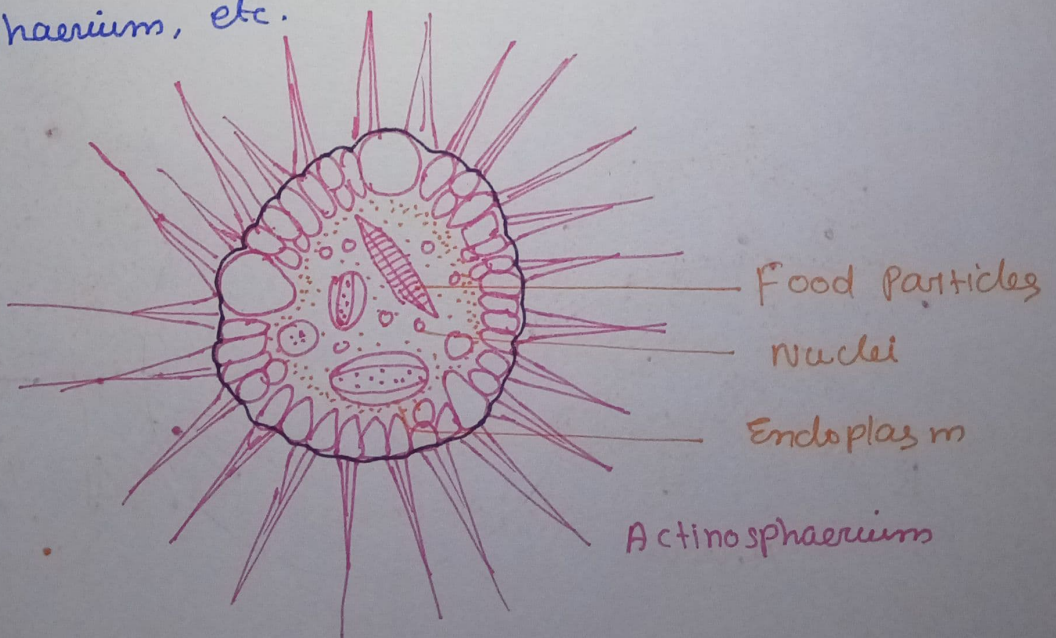 haerium, etc.
Food particles
Nuclei
Endoplasm
Actinosphaerium